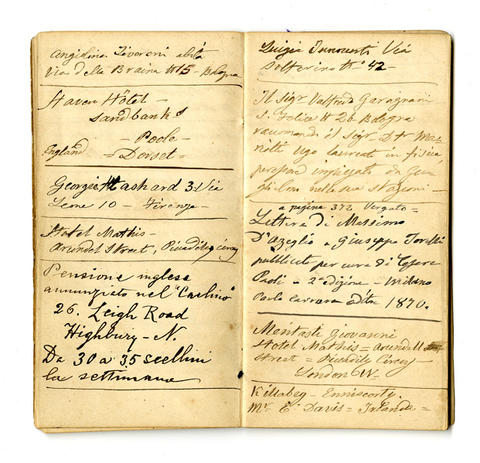 Angiolina Tivoroni abita
Via della Braina Nº 15 - Bologna
Haven Hôtel -
Sandbanks
Poole -
England = Dorset =
Georgia Hashard 31 Via
Leone 10 - Firenze -
Hotel Mathis -
Arundel Street, Picadely Circy
Pensione inglese
annunziato nel "Carlino"
26. Leigh Road
Highbury - N.
Da 30 a 35 scellini
la settimana
Luigia Innocenti Via
Solferino Nº 42 -
Il Sigr. Valfredo Garagnani
S. Felice Nº 26 Bologna
il Sigr. Dtr
Ugo laureato in fisica
impiegato da Gu-
glielmo nelle sue stazioni -
a pagina 372 Vergato -
Lettera di Massimo
D'Azeglio a Giuseppe Torelli
pubblicate per cura di Cesare
Paoli - 2ª edizione - Milano
Carlo Carrara edit. 1870.
Montasti Giovanni
Hotel Mathis = Arundell
Street = Picadely Circy
London W.
Killabeg - Enniscorty.
Mr. E. Davis = Irlanda =